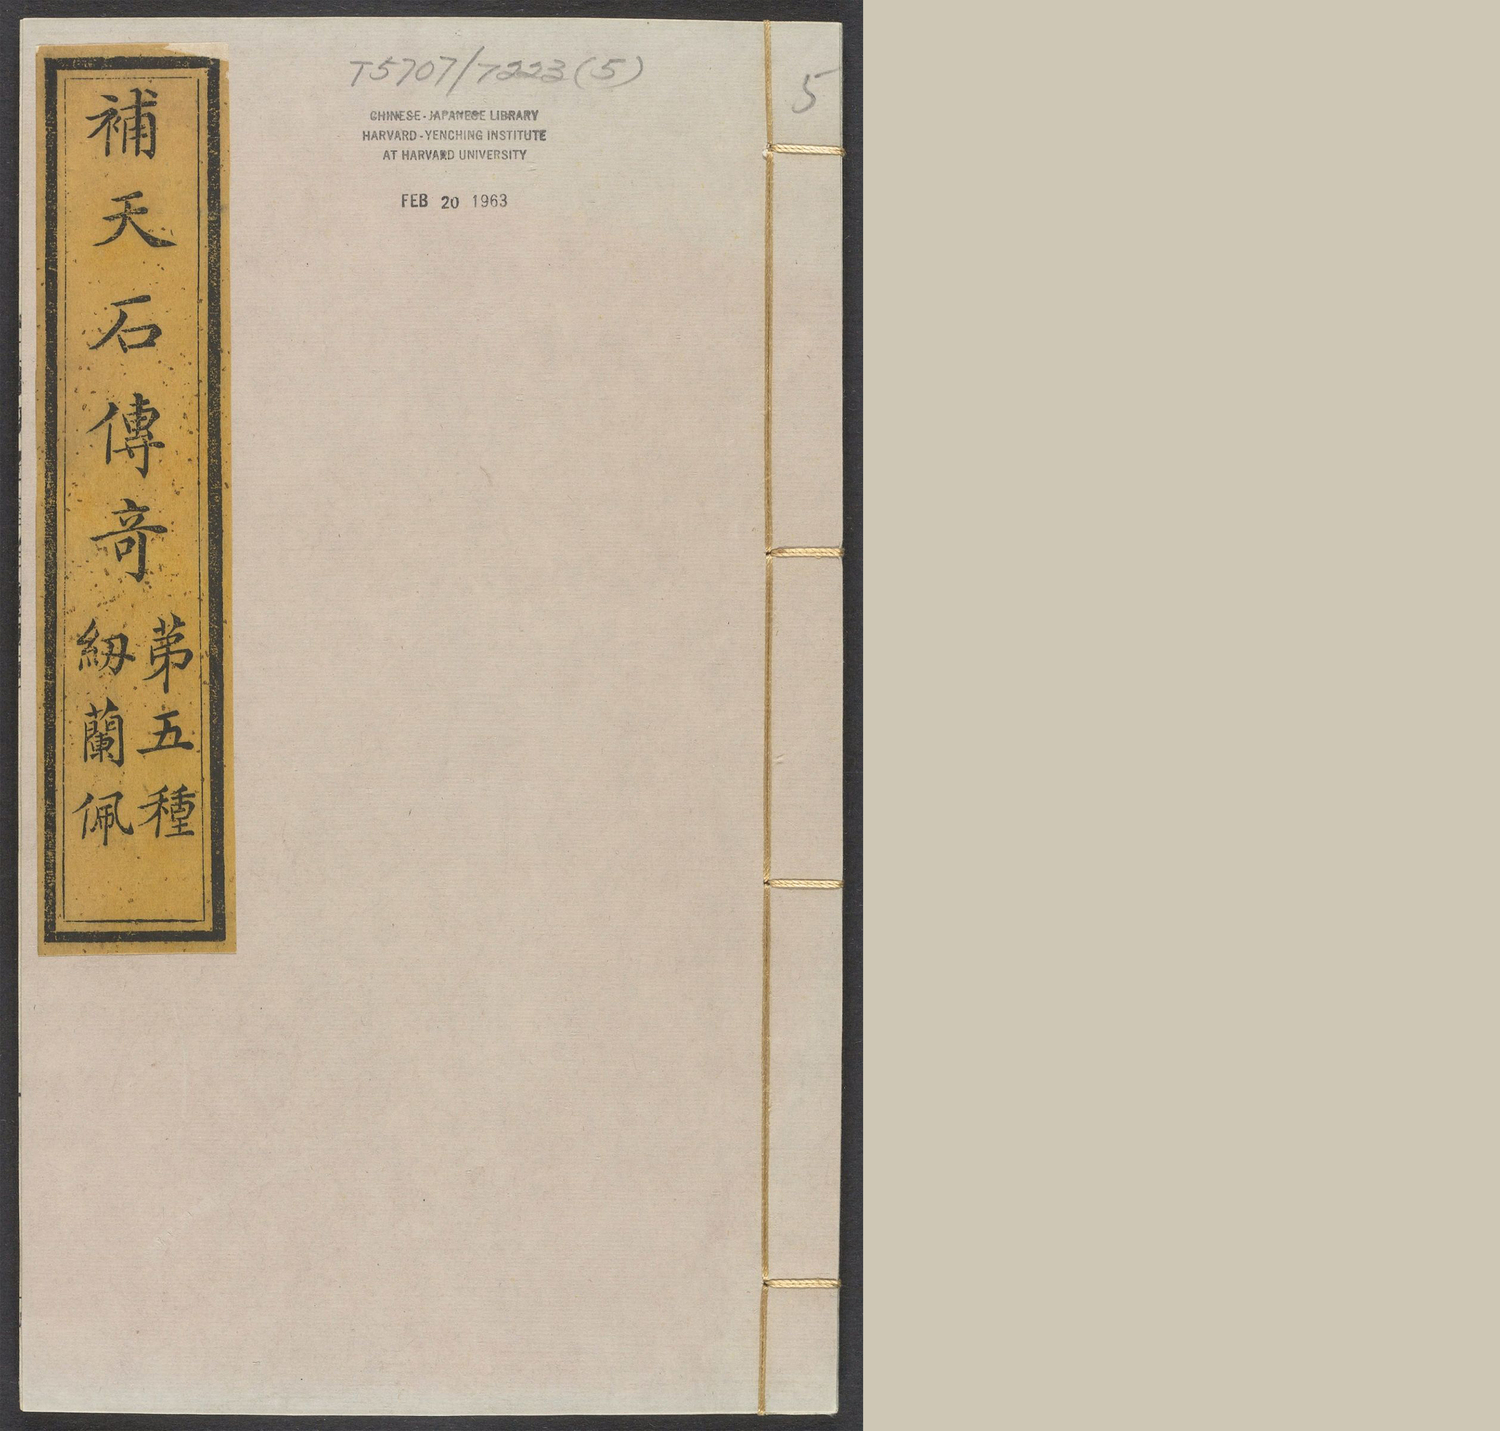 補天石傳奇
第五種
紉蘭佩
T5707/7223(5)
CHINESE-JAPANESE LIBRARY
HARVARD-YENCHING INSTITUTE
AT HARVARD UNIVERSITY
FEB 20 1963
5